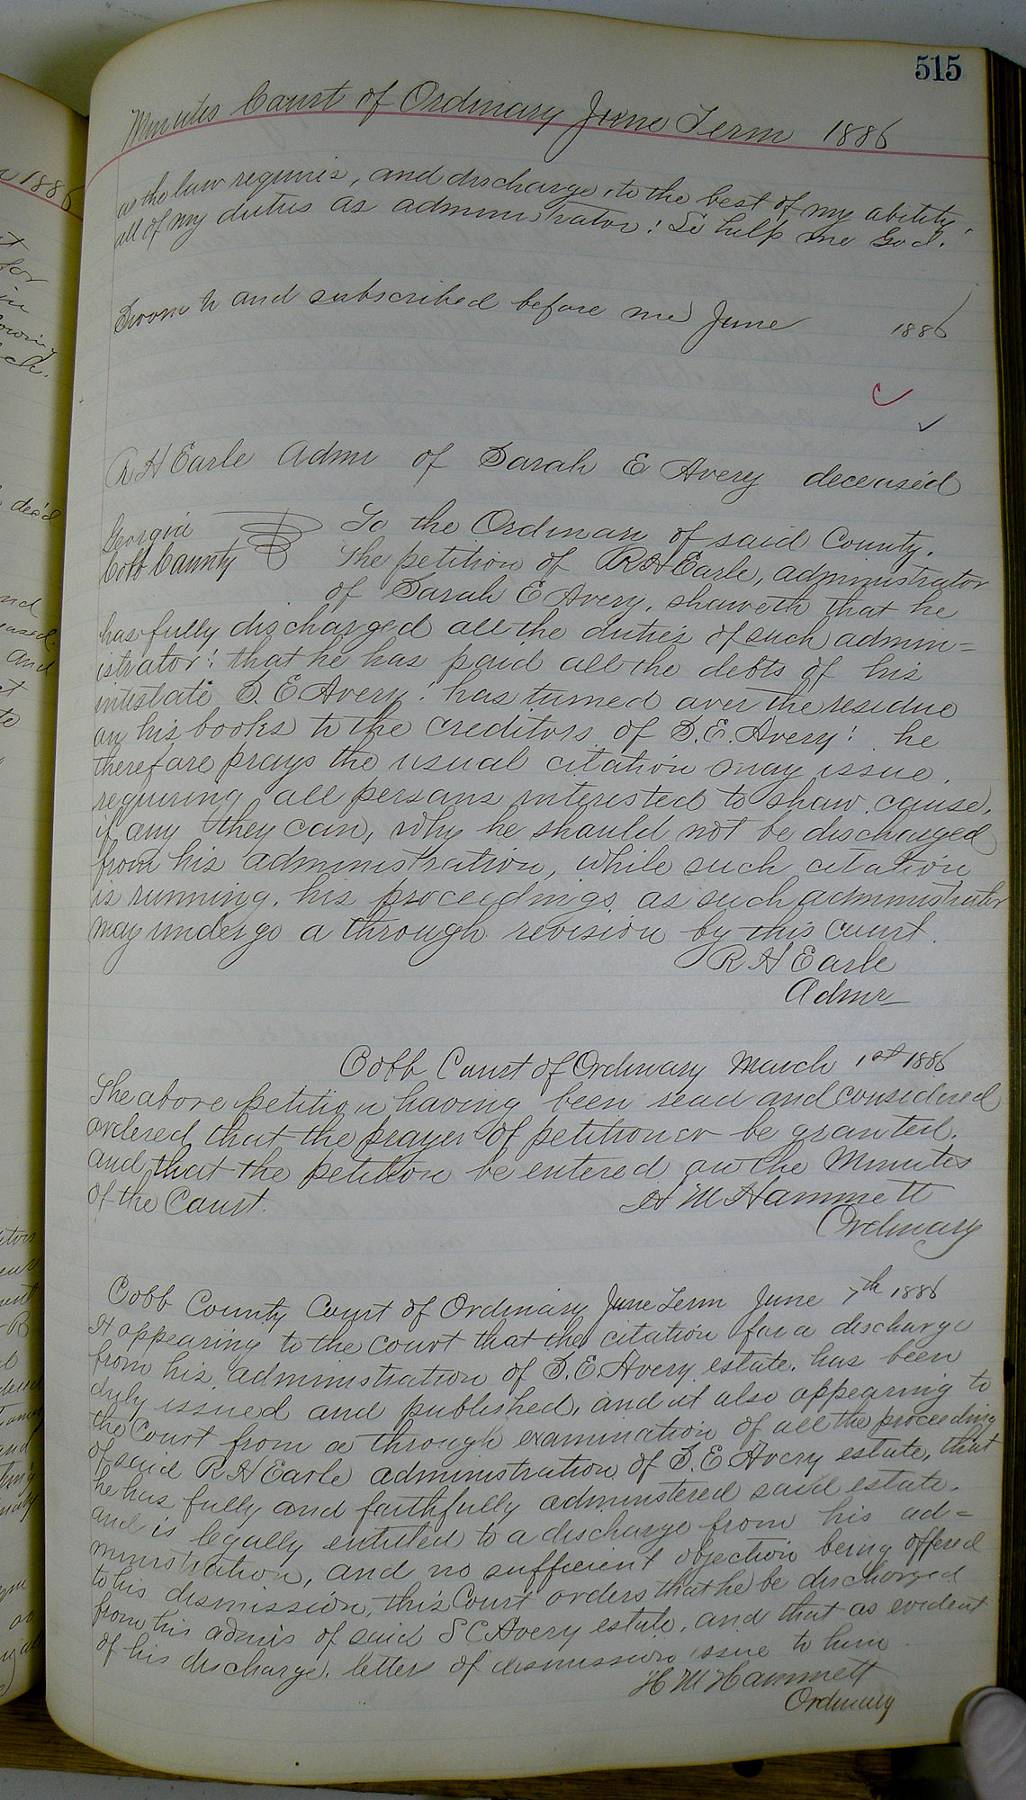 515
Minutes Court of Ordinary June Term 1886
as the law requires, and discharge, to the best of my ability,
all of my duties as administrator: So help me God.
Sworn to and subscribed before me June 1886
R H Earle Admr of Sarah E Avery deceased
Georgia
Cobb County
To the Ordinary of said County.
The petition of R H Earle, administrator
of Sarah E Avery, sheweth that he
has fully discharged all the duties of such admin=
istrator: that he has paid all the debts of his
intestate S. E Avery: has turned over the residue
on his books to the creditors of S. E. Avery: he
therefore prays the usual citation may issue.
requiring all persons interested to show cause,
if any they can, why he should not be discharged
from his administration, while such citation
is running, his proceedings as such administrator
may undergo a through revision by this Court.
R H Earle
Admr
Cobb Court of Ordinary March 1st 1886
The above petition having been read and considered
ordered that the prayer of petitioner be granted.
and that the petition be entered on the Minutes
of the Court.
H M Hammett
Ordinary
Cobb County Court of Ordinary June Term June 7th 1886
It appearing to the Court that the citation for a discharge
from his administration of S. E. Avery estate, has been
duly issued and published, and it also appearing to
the Court from a through examination of all the proceeding
of said R H Earle administration of S. E Avery estate, that
he has fully and faithfully administered said estate.
and is legally entitled to a discharge from his ad=
ministration, and no sufficient objection being offered
to his dismission, this Court orders that he be discharged
from his admis of said S E Avery estate, and that as evident
of his discharge, letters of dismission issue to him
H M Hammett
Ordinary